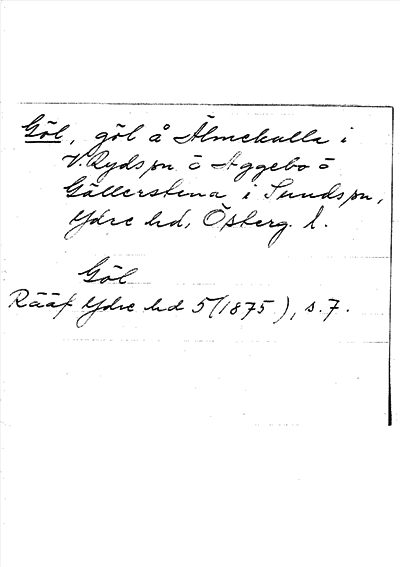 Göl, göl å Älmekulla i
V. Rydspn o Aggebo o
Gällerstena i Sundspn,
Ydre hd, Österg. l.
Göl
Rääf Ydre hd 5 (1875), s. 7.